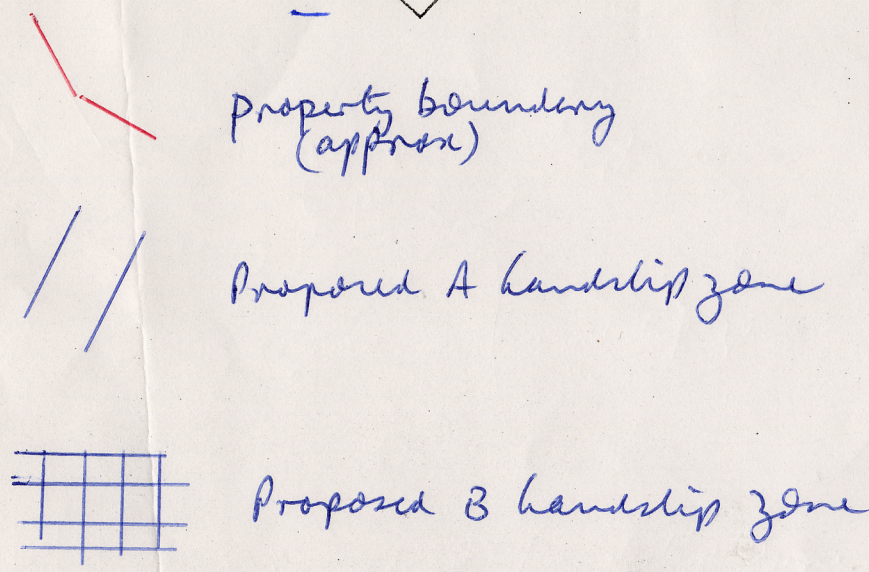 property boundary
(approx)
Proposed A Landslip zone
Proposed B Landslip zone